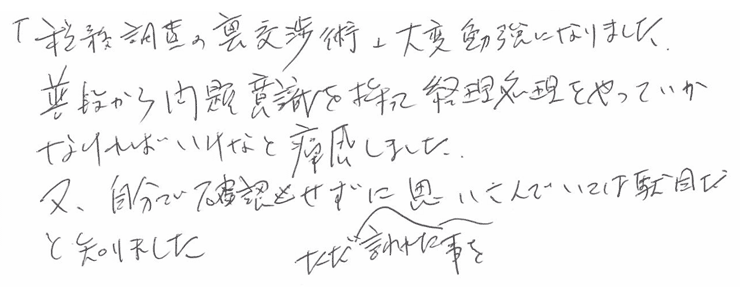 「税務調査の裏交渉術」大変勉強になりました。
普段から問題意識を持って経理処理をやっていか
なければいけないと痛感しました。
又、自分で確認もせずに思いこんでいては駄目だ
と知りました ただ言われた事を